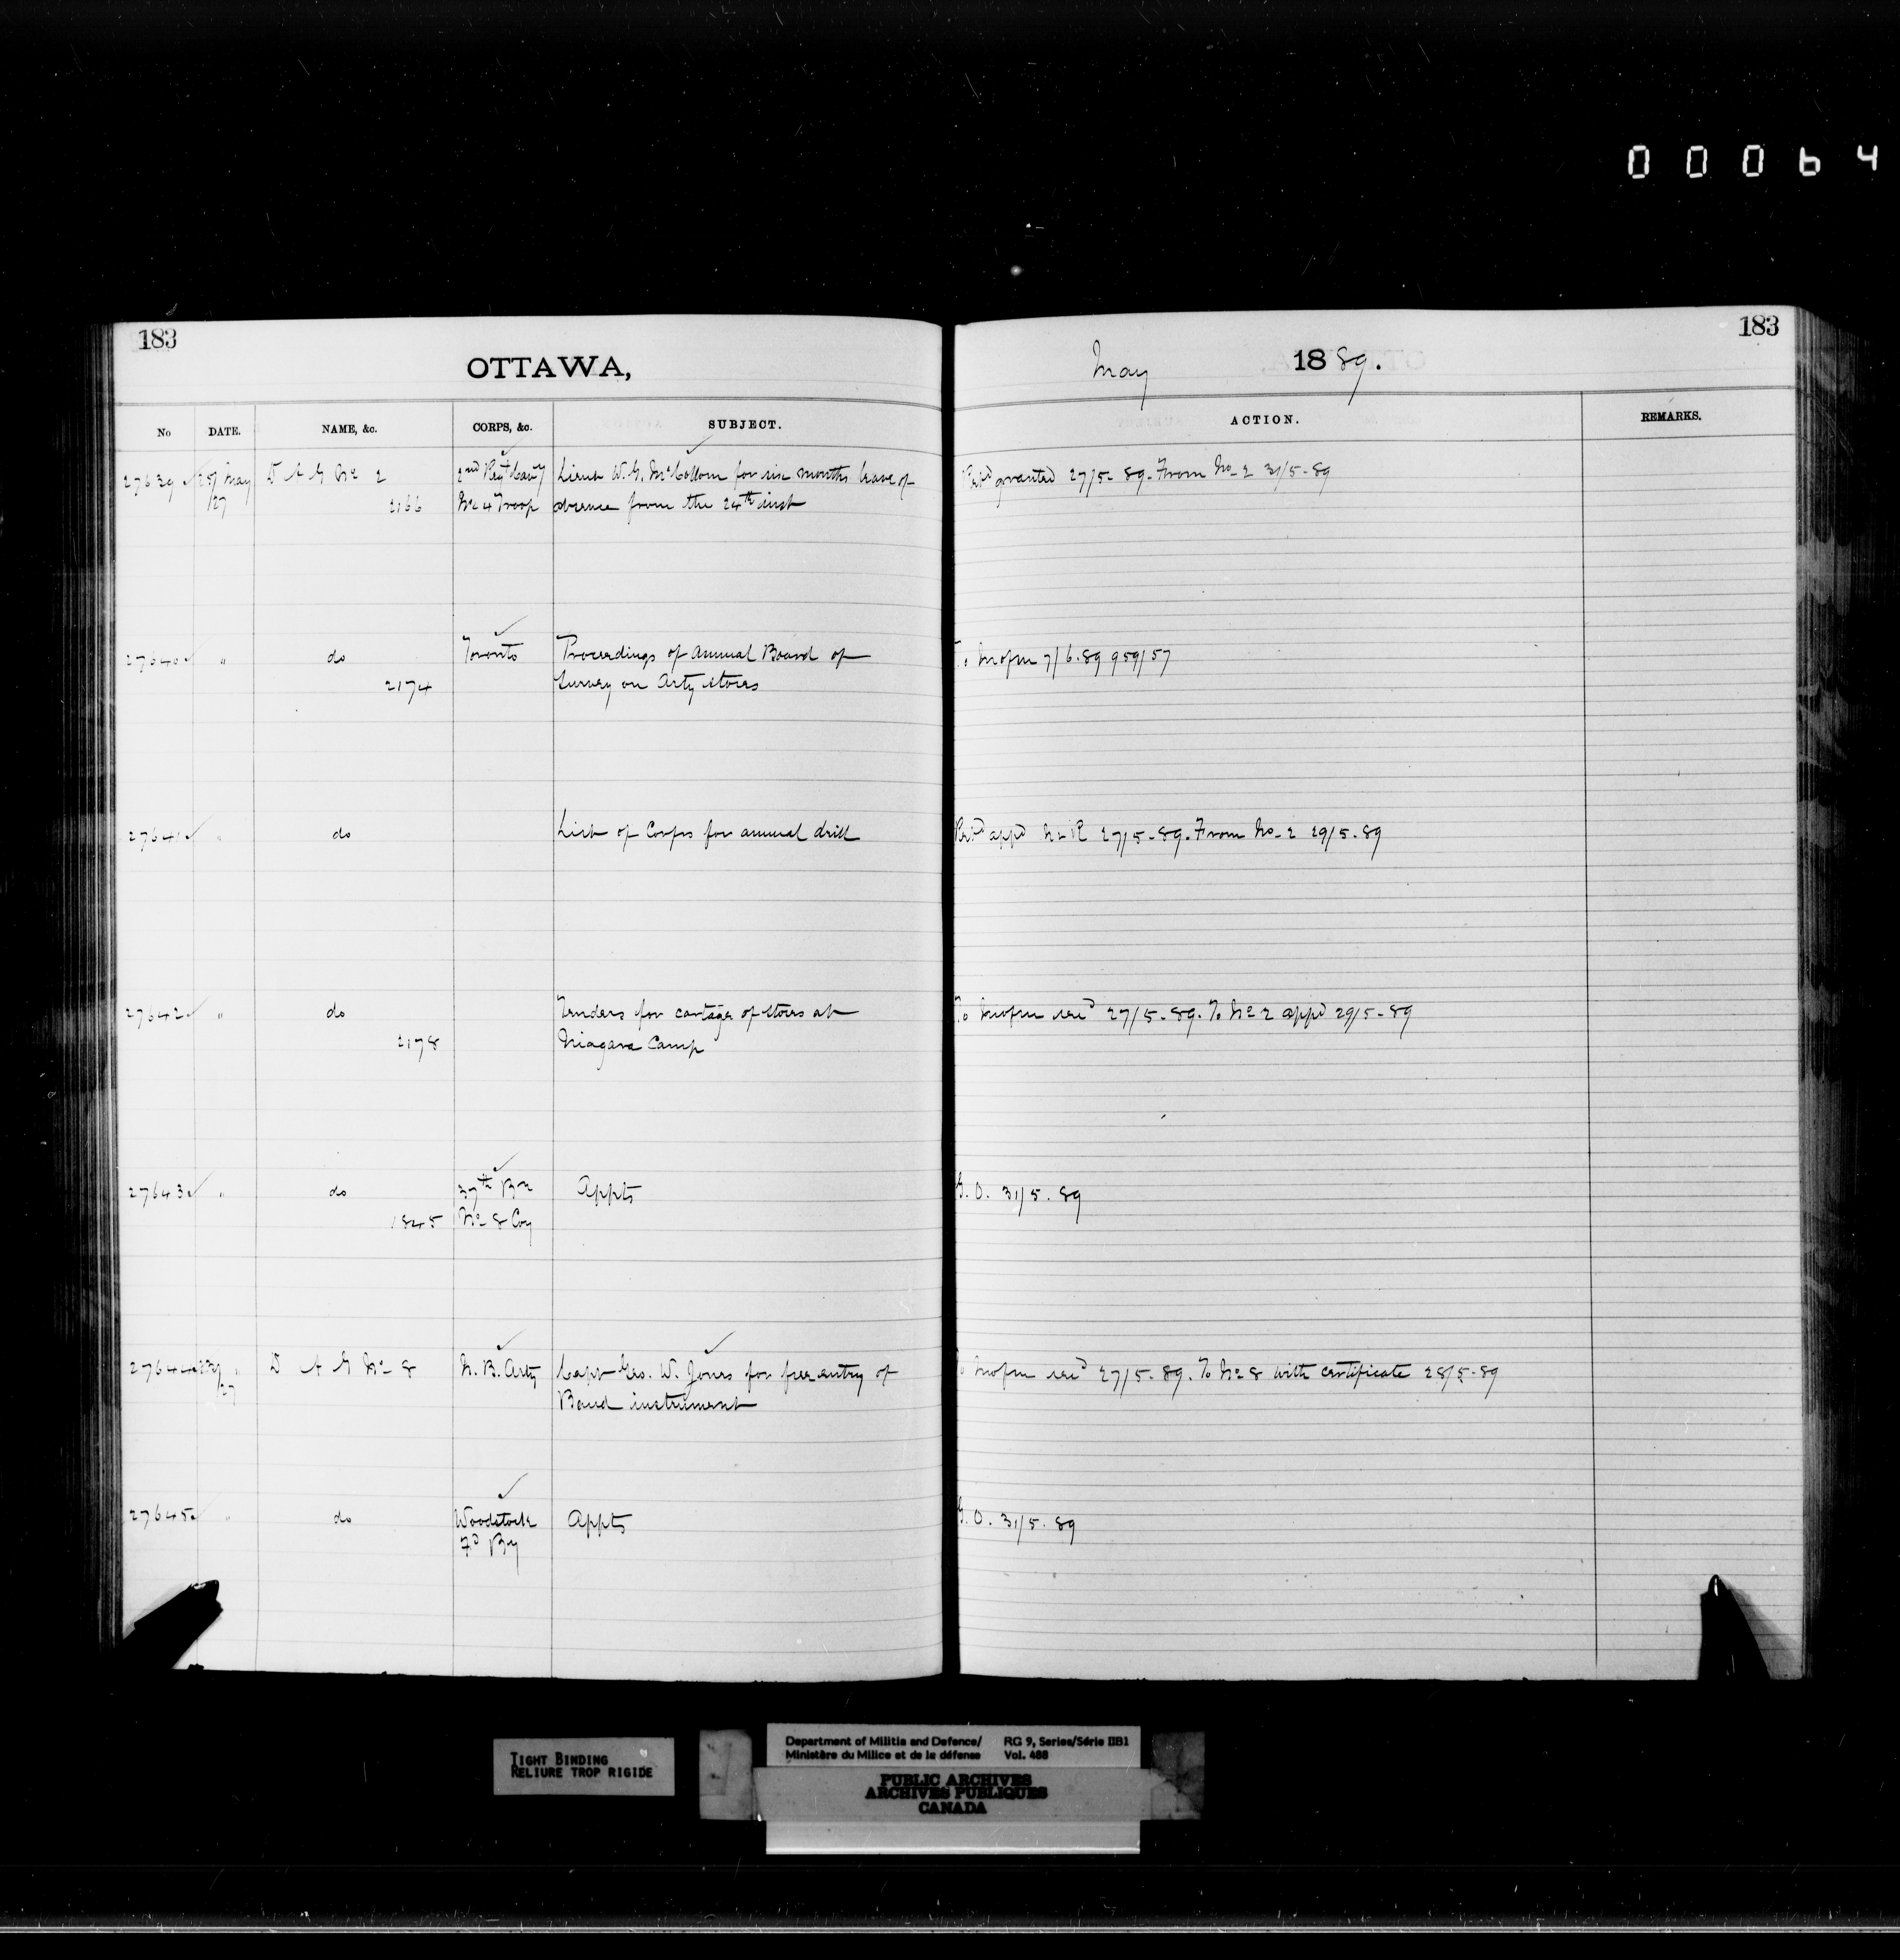 00064
183
OTTAWA,
May 1889.
183
No DATE. NAME, &c. CORPS, &c. SUBJECT. ACTION. REMARKS.
27639 25/ May D A G No 2 2nd Regt Cavy Lieut W. G. McCollom for six months leave of granted 27/5-89. From No-2 31/5-89
/27 2166 No 4 Troop absence from the 24th inst
27640 " do Toronto Proceedings of Annual Board of To 7/6.89 959/57
2174 Survey on Arty Stores
27641 " do List of Corps for annual drill appd 27/5-89. From No-2 29/5-89
27642 " do Tenders for cartage of stores at To 27/5-89. To No 2 appd 29/5-89
2178 Niagara Camp
27643 " do 37th Bn Appts G.O. 31/5.89
1845 No 8 Coy
27644 23/ " D A G No 8 N. B. Arty Capt Geo. W. Jones for free entry of To 27/5-89. To No 8 with certificate 28/5-89
/27 Band instrument
27645 " do Woodstock Appts G.O. 31/5.89
Fd By
TIGHT BINDING
RELIURE TROP RIGIDE
Department of Militia and Defence/ RG 9, Series/Série IIB1
Ministère du Milice et de la défense Vol. 488
PUBLIC ARCHIVES
ARCHIVES PUBLIQUES
CANADA